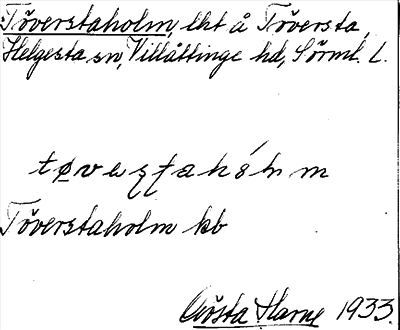 Töverstaholm, lht å Töversta,
Helgesta sn, Villåttinge hd, Sörml. L.
tøvaʂʈahólm
Töverstaholm kb
Gösta Harne 1933.